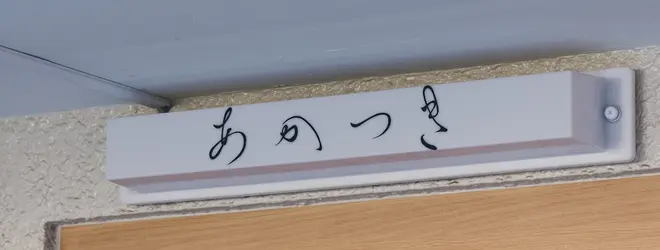 あかつき